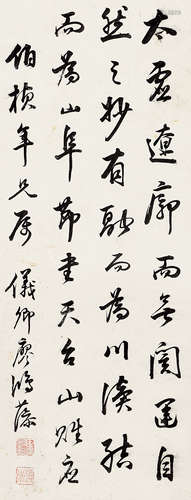 太虛遼廓而無閡運自
然之妙有融而為川瀆結
而為山阜節書天台山賦應
伯楨年兄屬 儀卿廖鴻藻